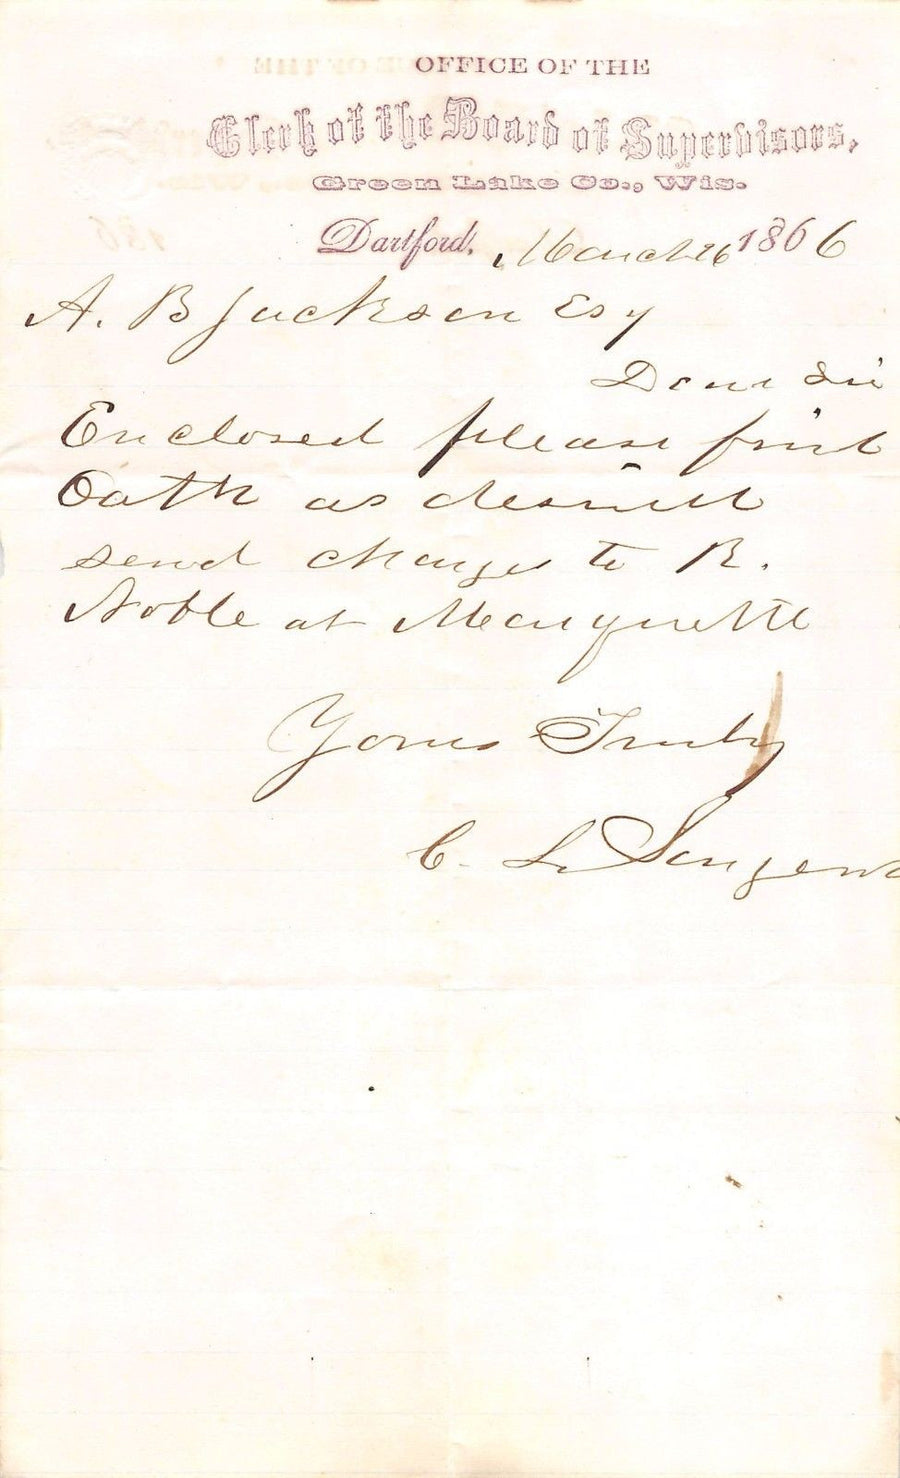 OFFICE OF THE
Clerk of the Board of Supervisors,
Green Lake Co., Wis.
Dartford, March 26 1866
A. B Jackson Esq
Dear Sir
Enclosed please find
Oath as desired
send charges to R.
Noble at Marquette
Yours Truly
C. L. Sargent